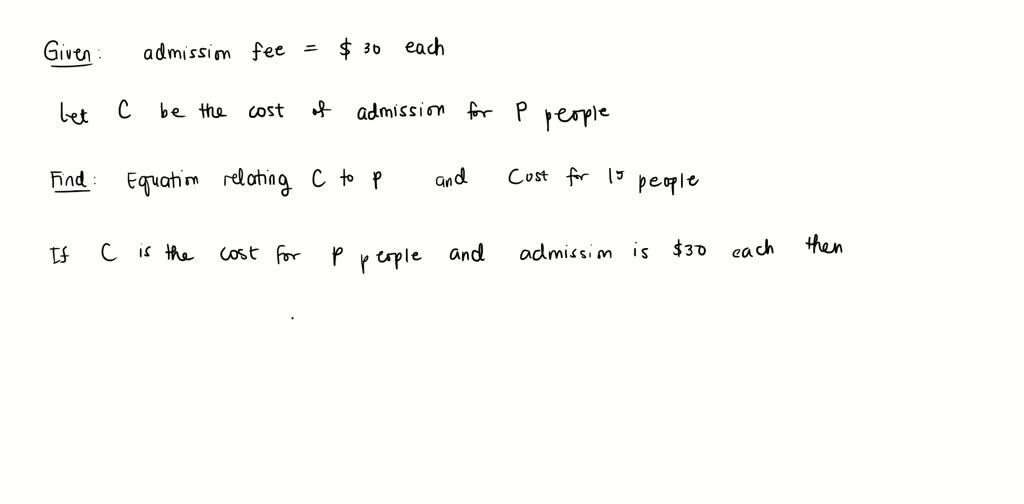 Given: admission fee = $30 each
Let C be the cost of admission for P people
Find: Equation relating C to P and Cost for 15 people
If C is the cost for P people and admission is $30 each then